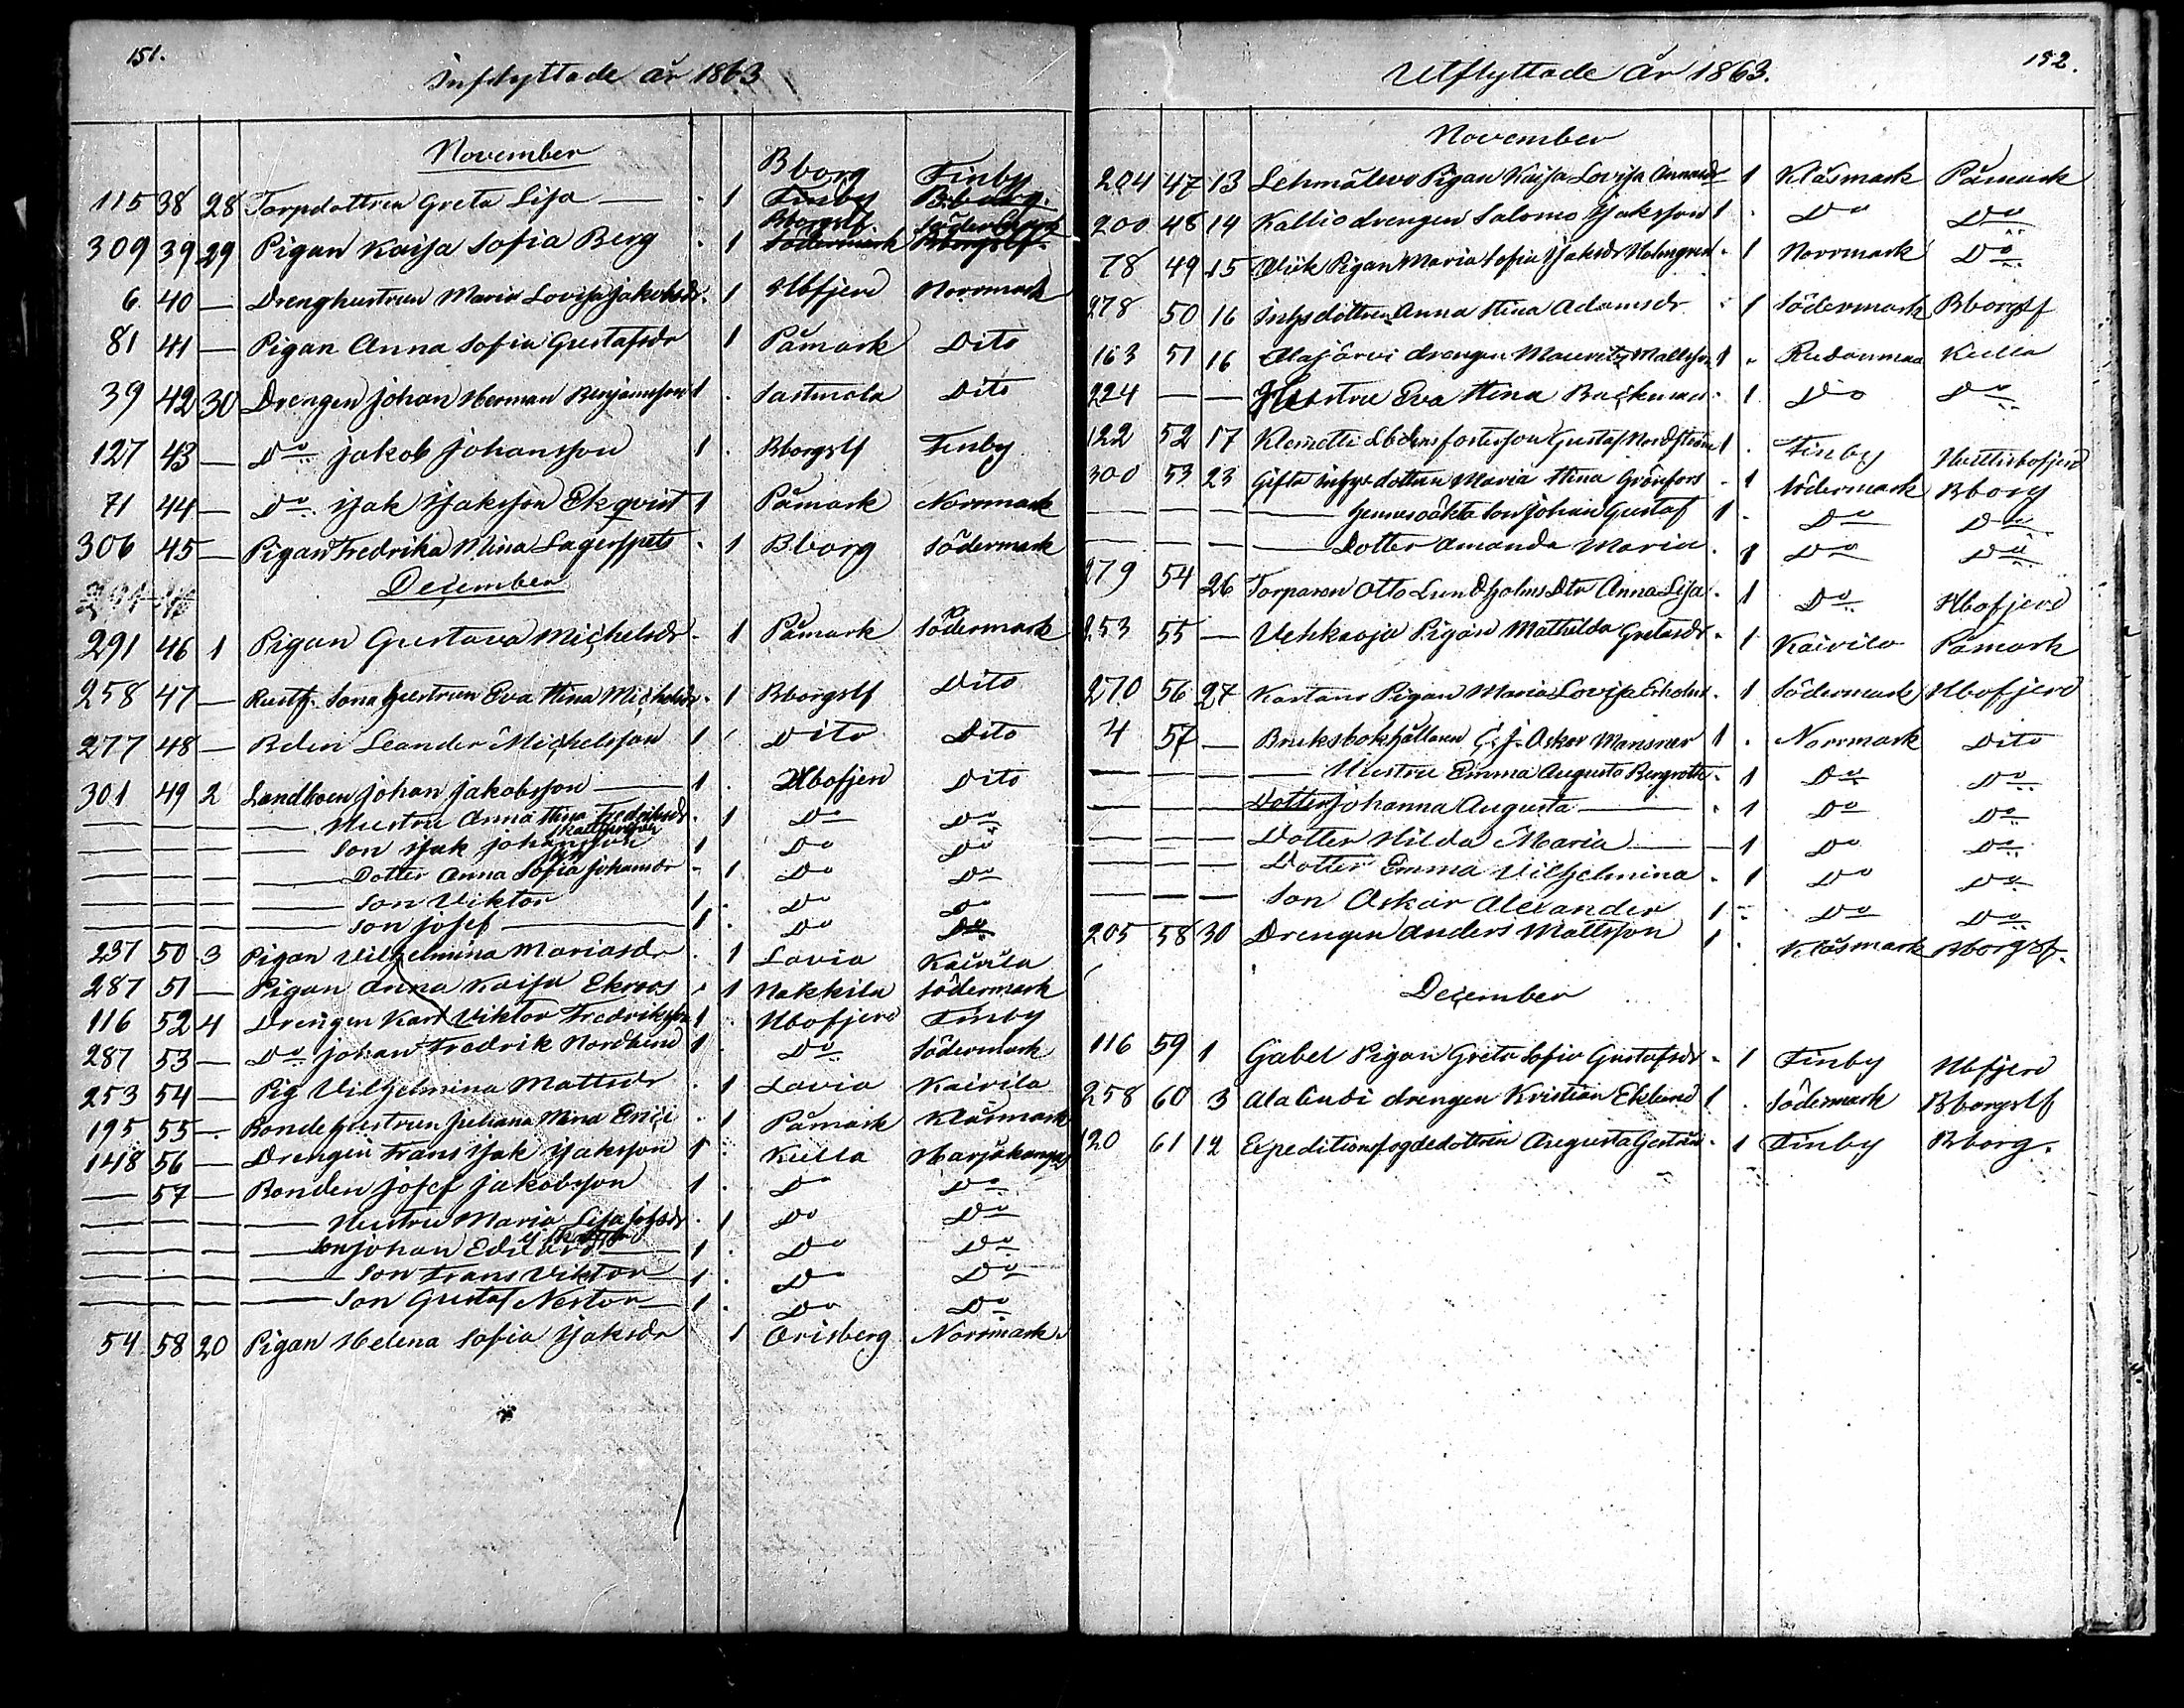 151.
Inflyttade år 1863
November
Bborg Finby
115 38 28 Torpdottren Greta Lisa — . 1 Finby Bborg.
Bborgslf. Södermark
309 39 29 Pigan Kaisa Sofia Berg . 1 Södermark Bborgslf.
6 40 — Drenghustrun Maria Lovisa Jakobsdr. 1 Hbfjerd Norrmark
81 41 — Pigan Anna Sofia Gustafsdr 1 Påmark Dito
39 42 30 Drengen Johan Herman Benjamsson 1 . Sastmola Dito
127 43 — Do Jakob Johansson 1 . Bborgslf Finby
71 44 — Do Isak Isaksson Ekqvist 1 Påmark Norrmark
306 45 — Pigan Fredrika Mina Lagerspets . 1 Bborg Södermark
December
291 46 1 Pigan Gustava Michelsdr . 1 Påmark Södermark
258 47 — Rustf. Sonahustrun Eva Stina Michelsdr . 1 Bborgslf Dito
277 48 — Leander Michelsson 1 . Dito Dito
301 49 2 Landboen Johan Jakobsson — 1 . Hbofjerd Dito
— — — — Hustru Anna Stina Fredriksdr . 1 Do Do
— — — — Son Isak Johansson 1 Do Do
— — — — Dotter Anna Sofia Johansdr . 1 Do Do
— — — — Son Viktor 1 . Do Do
— — — — Son Josef — 1 . Do Do
237 50 3 Pigan Vilhelmina Mariasdr . 1 Lavia Kairila
287 51 — Pigan Anna Kaisa Ekroos . 1 Nakkila Södermark
116 52 4 Drengen Karl Viktor Fredriksson 1 . Hbofjerd Finby
287 53 — Do Johan Fredrik Nordlund 1 . Do Södermark
253 54 — Pig Vilhelmina Mattsdr . 1 Lavia Kairila
195 55 — Bondehustrun Juliana Mina Erici . 1 Påmark Klåsmark
148 56 — Drengen Frans Isak Isaksson 1 . Kulla Harjakangas
— 57 — Bonden Josef Jakobsson 1 . Do Do
— — — — Hustru Maria Lisa Josefsdr . 1 Do Do
— — — — Son Johan Edvard — 1 . Do Do
— — — — Son Frans Viktor — 1 . Do Do
— — — — Son Gustaf Nestor — 1 . Do Do
54 58 20 Pigan Helena Sofia Isaksdr 1 Orisberg Norrmark.
152.
Utflyttade År 1863.
November
204 47 13 Pigan Kaisa Lovisa Annasdr 1 Klåsmark Påmark
200 48 14 Kallio drengen Salomo Isaksson 1 . Do Do
78 49 15 Viik Pigan Maria Sofia Isaksdr Holmgren . 1 Norrmark Do
278 50 16 Inhysdottren Anna Stina Adamsdr . 1 Södermark Bborgslf
163 51 16 Alajärvi drengen Mauritz Mattsson 1 . Rudanmaa Kulla
224 — — Hustru Eva Stina Backman . 1 Do Do
122 52 17 Klemetti fosterson Gustaf Nordström 1 . Finby Hvittisbofjerd
300 53 23 Gifta Inhysedottren Maria Stina Grönfors . 1 Södermark Bborg
— — — — hennes oäkta Son Johan Gustaf 1 . Do Do
— — — — Dotter Amanda Maria . 1 Do Do
279 54 26 Torparen Otto Lundholms Dtr Anna Lisa . 1 Do Hbofjerd
253 55 — Vehkaoja Pigan Mathilda Gretasdr . 1 Kairila Påmark
270 56 27 Kartano Pigan Maria Lovisa Ekholm . 1 Södermark Hbofjerd
4 57 — Bruksbokhållaren G. J. Oskar Mansner 1 . Norrmark Dito
— — — — Hustru Emma Augusta Bergroth . 1 Do Do
— — — Dotter Johanna Augusta — . 1 Do Do
— — — Dotter Hilda Maria — 1 Do Do
— — — Dotter Emma Vilhelmina . 1 Do Do
— — — Son Oskar Alexander 1 — Do Do
205 58 30 Drengen Anders Mattsson 1 . Klåsmark Bborgslf.
December
116 59 1 Gabel Pigan Greta Sofia Gustafsdr . 1 Finby Hbfjerd
258 60 3 Alaluudi drengen Kristian Eklund 1 . Södermark Bborgslf
120 61 12 Expeditionsfogdedottren Augusta . 1 Finby Bborg.